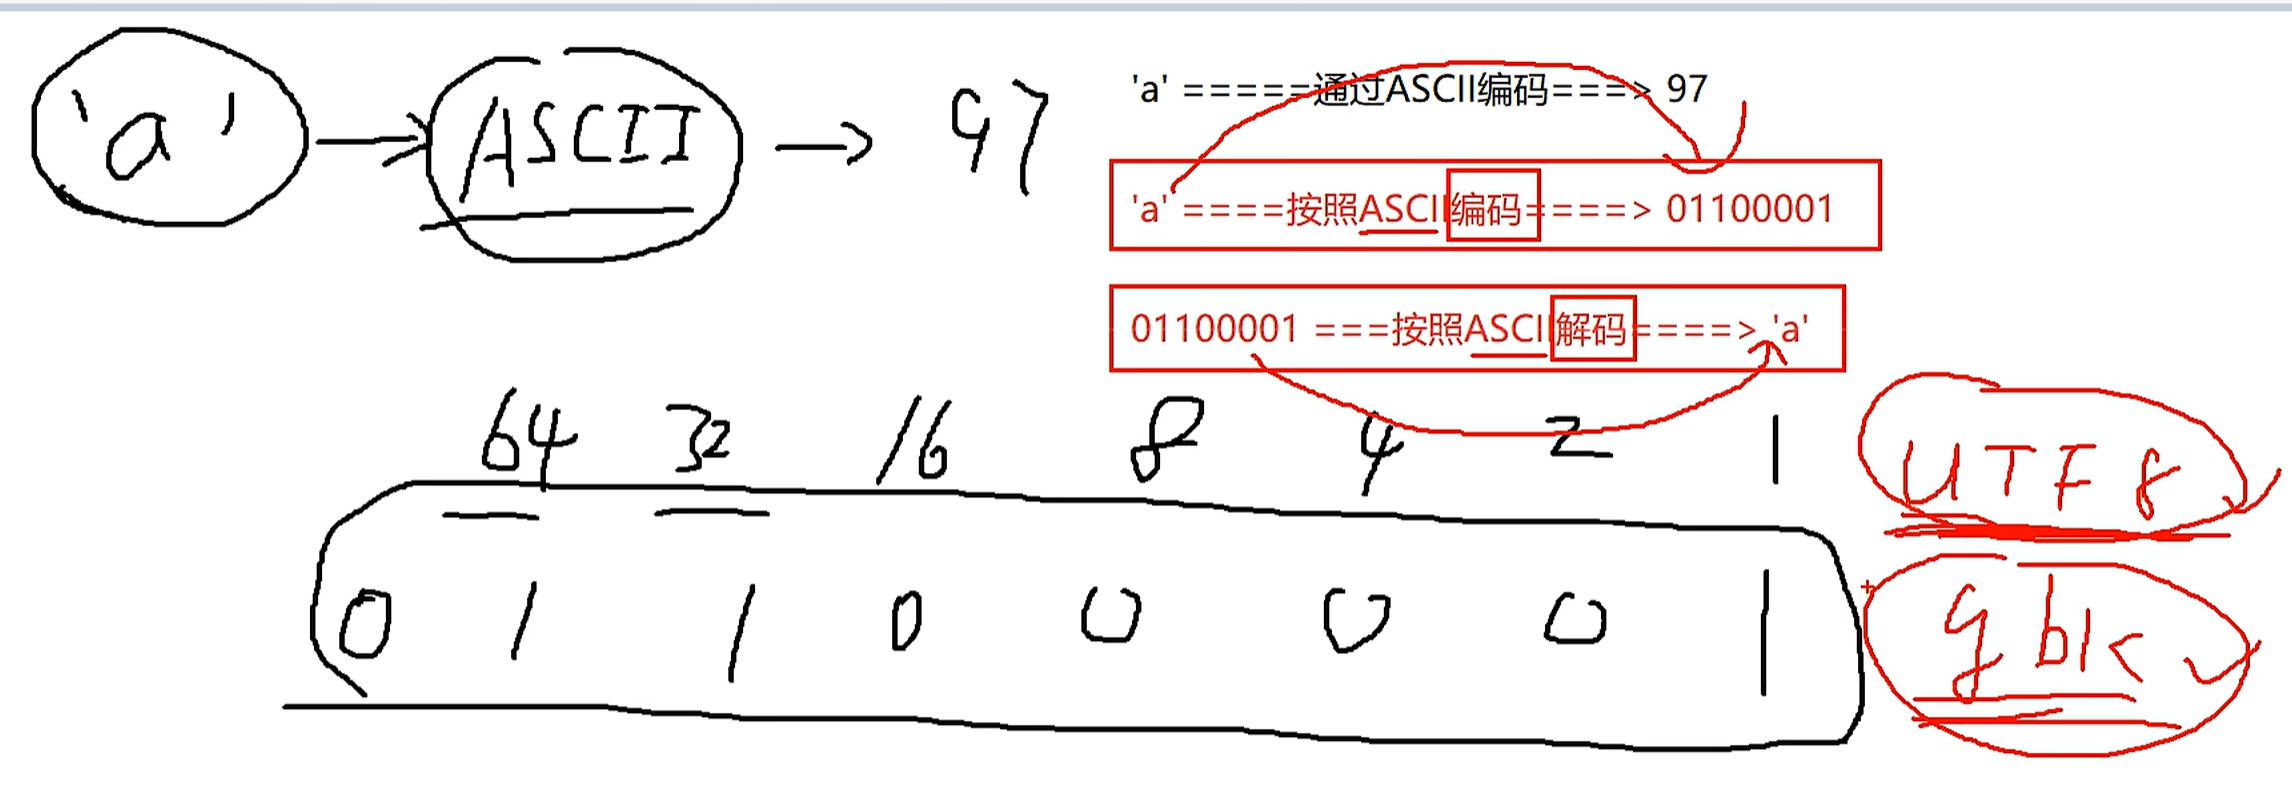 'a' → ASCII → 97
'a' =====通过ASCII编码===> 97
'a' ====按照ASCII编码====> 01100001
01100001 ===按照ASCII解码====> 'a'
64 32 16 8 4 2 1
0 1 1 0 0 0 0 1
UTF8
gbk